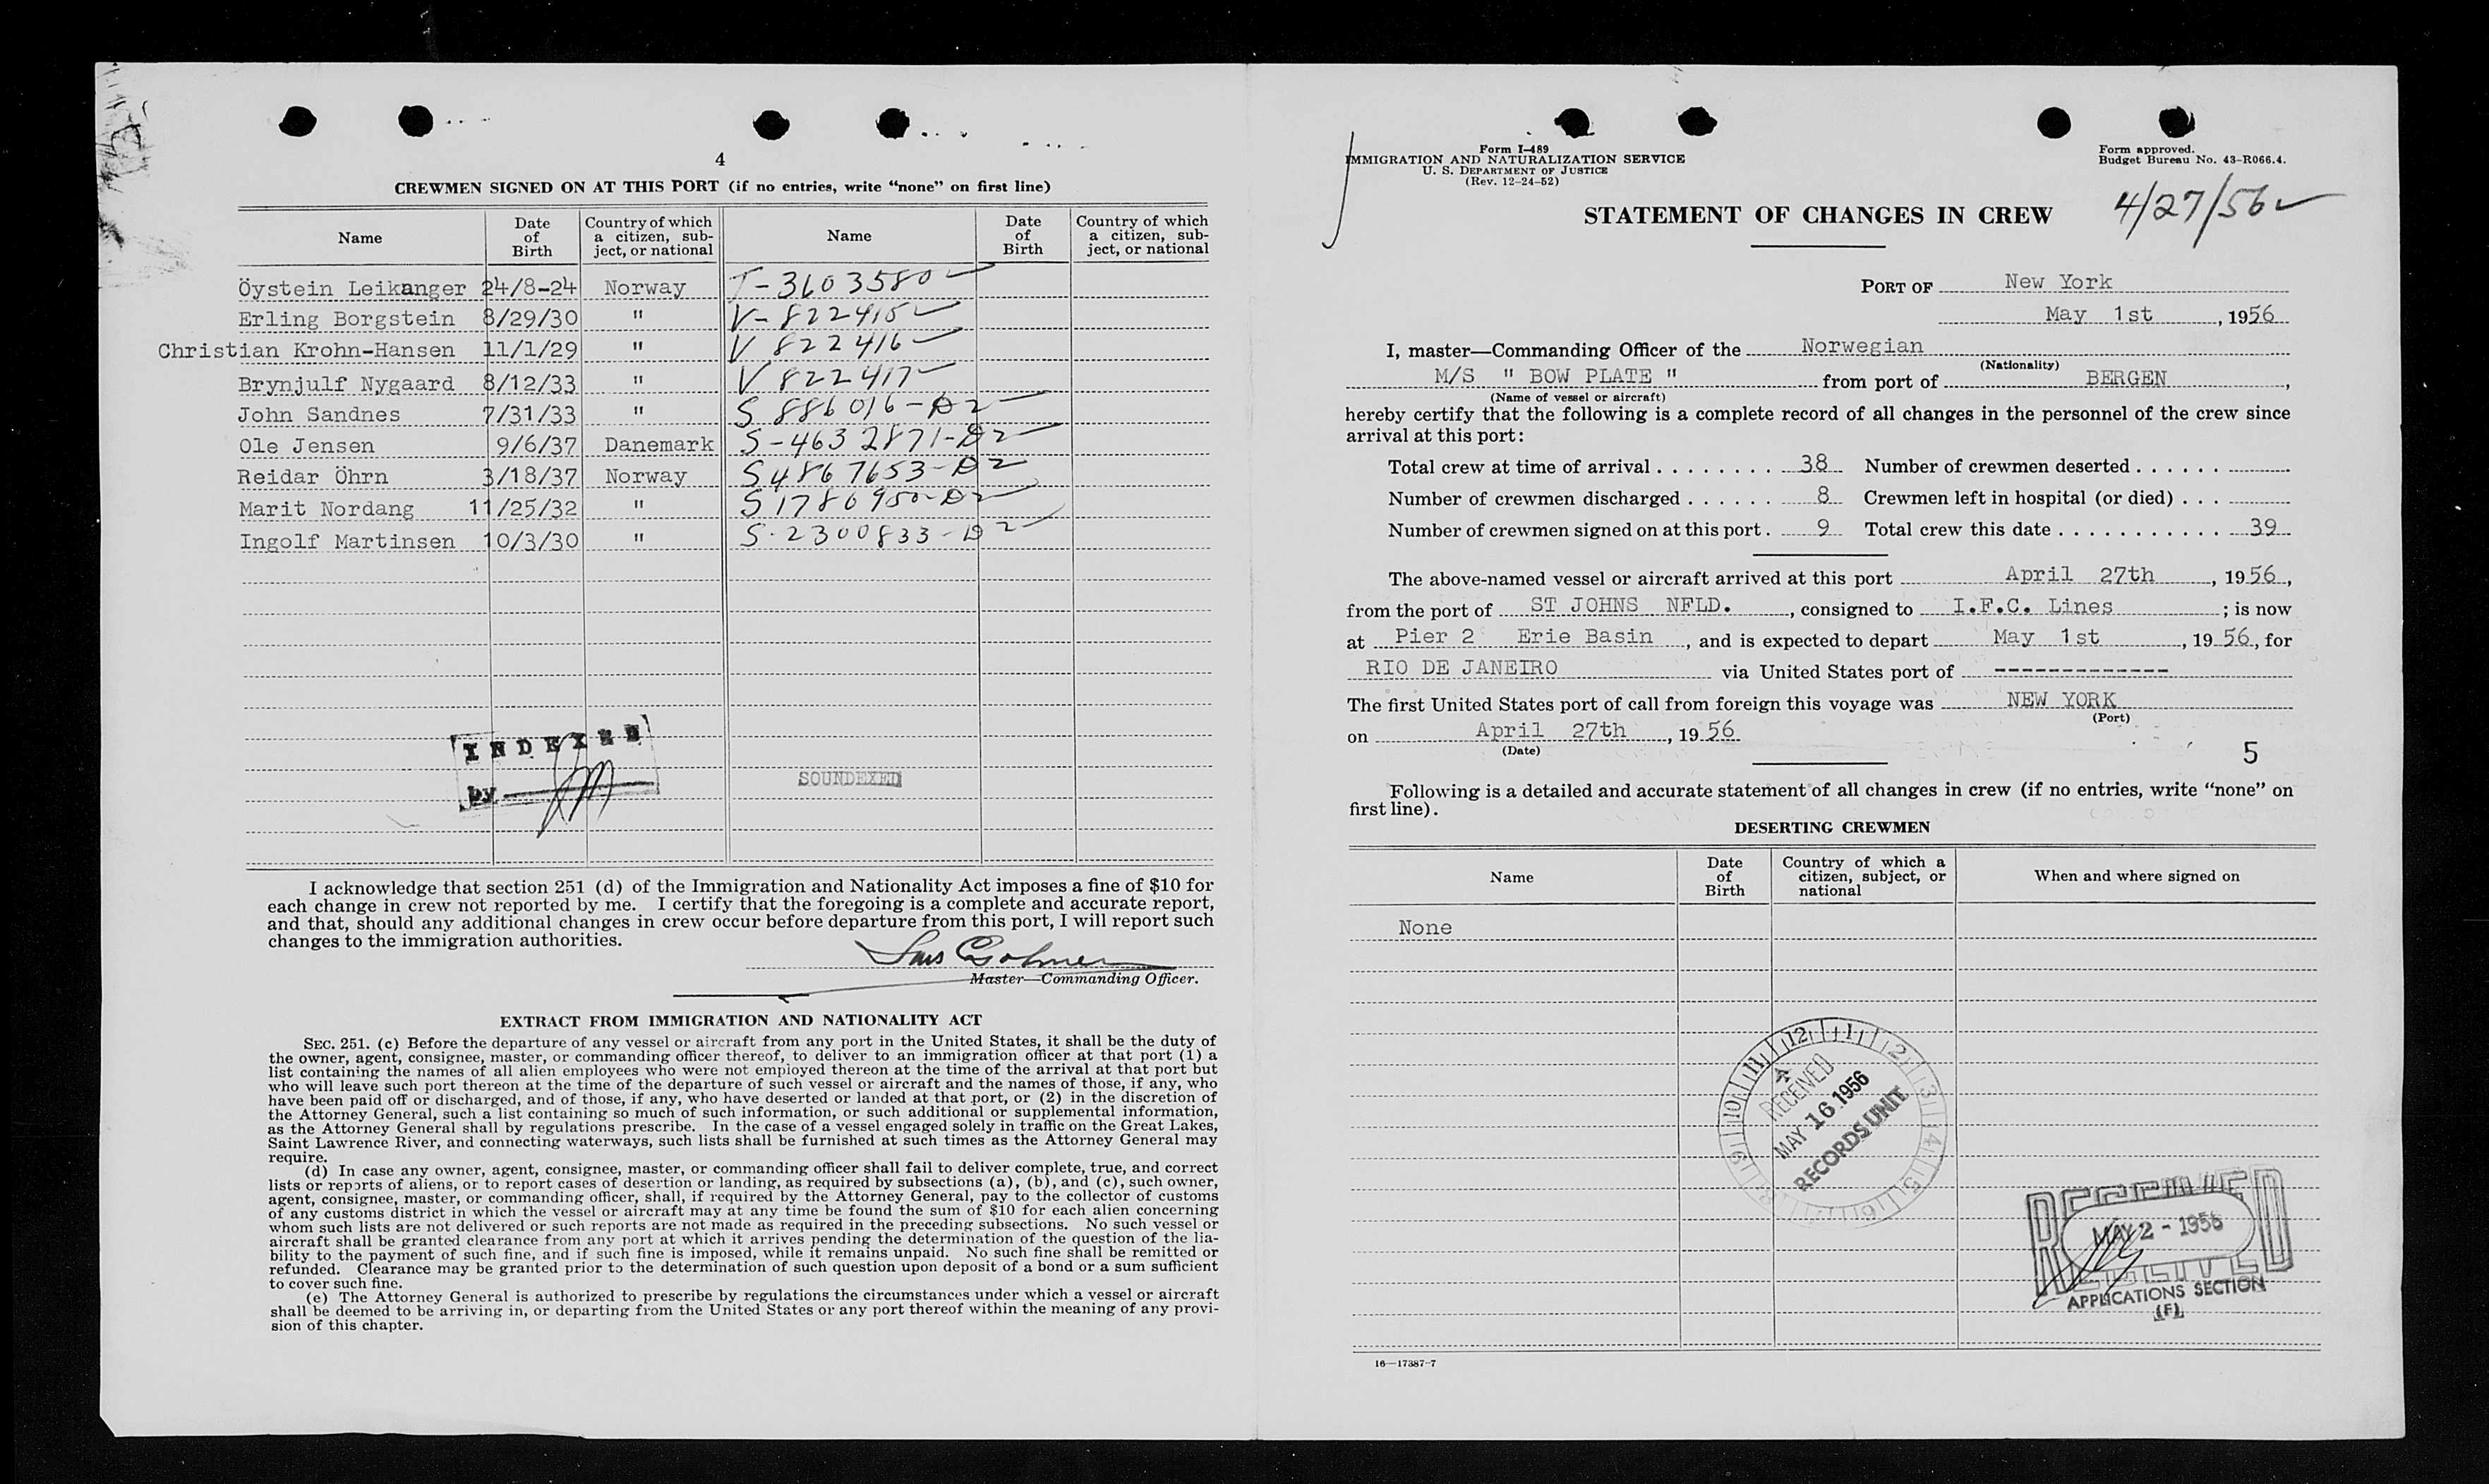 4
CREWMEN SIGNED ON AT THIS PORT (if no entries, write "none" on first line)
Name Date of Birth Country of which a citizen, subject, or national Name Date of Birth Country of which a citizen, subject, or national
Öystein Leikanger 24/8-24 Norway T-3603580
Erling Borgstein 8/29/30 " V-822415
Christian Krohn-Hansen 11/1/29 " V 822416
Brynjulf Nygaard 8/12/33 " V 822417
John Sandnes 7/31/33 " S 886016-D2
Ole Jensen 9/6/37 Danemark S-4632871-D2
Reidar Öhrn 3/18/37 Norway S4867653-D2
Marit Nordang 11/25/32 " S1786950-D2
Ingolf Martinsen 10/3/30 " S-2300833-D2
INDEXED
by
SOUNDEXED
I acknowledge that section 251 (d) of the Immigration and Nationality Act imposes a fine of $10 for
each change in crew not reported by me. I certify that the foregoing is a complete and accurate report,
and that, should any additional changes in crew occur before departure from this port, I will report such
changes to the immigration authorities.
Master—Commanding Officer.
EXTRACT FROM IMMIGRATION AND NATIONALITY ACT
SEC. 251. (c) Before the departure of any vessel or aircraft from any port in the United States, it shall be the duty of
the owner, agent, consignee, master, or commanding officer thereof, to deliver to an immigration officer at that port (1) a
list containing the names of all alien employees who were not employed thereon at the time of the arrival at that port but
who will leave such port thereon at the time of the departure of such vessel or aircraft and the names of those, if any, who
have been paid off or discharged, and of those, if any, who have deserted or landed at that port, or (2) in the discretion of
the Attorney General, such a list containing so much of such information, or such additional or supplemental information,
as the Attorney General shall by regulations prescribe. In the case of a vessel engaged solely in traffic on the Great Lakes,
Saint Lawrence River, and connecting waterways, such lists shall be furnished at such times as the Attorney General may
require.
(d) In case any owner, agent, consignee, master, or commanding officer shall fail to deliver complete, true, and correct
lists or reports of aliens, or to report cases of desertion or landing, as required by subsections (a), (b), and (c), such owner,
agent, consignee, master, or commanding officer, shall, if required by the Attorney General, pay to the collector of customs
of any customs district in which the vessel or aircraft may at any time be found the sum of $10 for each alien concerning
whom such lists are not delivered or such reports are not made as required in the preceding subsections. No such vessel or
aircraft shall be granted clearance from any port at which it arrives pending the determination of the question of the lia-
bility to the payment of such fine, and if such fine is imposed, while it remains unpaid. No such fine shall be remitted or
refunded. Clearance may be granted prior to the determination of such question upon deposit of a bond or a sum sufficient
to cover such fine.
(e) The Attorney General is authorized to prescribe by regulations the circumstances under which a vessel or aircraft
shall be deemed to be arriving in, or departing from the United States or any port thereof within the meaning of any provi-
sion of this chapter.
Form I-489
IMMIGRATION AND NATURALIZATION SERVICE
U. S. DEPARTMENT OF JUSTICE
(Rev. 12-24-52)
Form approved.
Budget Bureau No. 43-R066.4.
4/27/56
STATEMENT OF CHANGES IN CREW
PORT OF New York
May 1st, 1956
I, master—Commanding Officer of the Norwegian
(Nationality)
M/S " BOW PLATE " from port of BERGEN,
(Name of vessel or aircraft)
hereby certify that the following is a complete record of all changes in the personnel of the crew since
arrival at this port:
Total crew at time of arrival 38 Number of crewmen deserted
Number of crewmen discharged 8 Crewmen left in hospital (or died)
Number of crewmen signed on at this port. 9 Total crew this date 39
The above-named vessel or aircraft arrived at this port April 27th, 1956,
from the port of ST JOHNS NFLD., consigned to I.F.C. Lines; is now
at Pier 2 Erie Basin, and is expected to depart May 1st, 1956, for
RIO DE JANEIRO via United States port of -------------
The first United States port of call from foreign this voyage was NEW YORK
(Port)
on April 27th, 1956
(Date)
5
Following is a detailed and accurate statement of all changes in crew (if no entries, write "none" on
first line).
DESERTING CREWMEN
Name Date of Birth Country of which a citizen, subject, or national When and where signed on
None
12 1 2 3 4 5 6 8 9 10 11
A
RECEIVED
MAY 16 1956
RECORDS UNIT
RECEIVED
MAY 2 - 1956
APPLICATIONS SECTION
(F)
16—17387-7